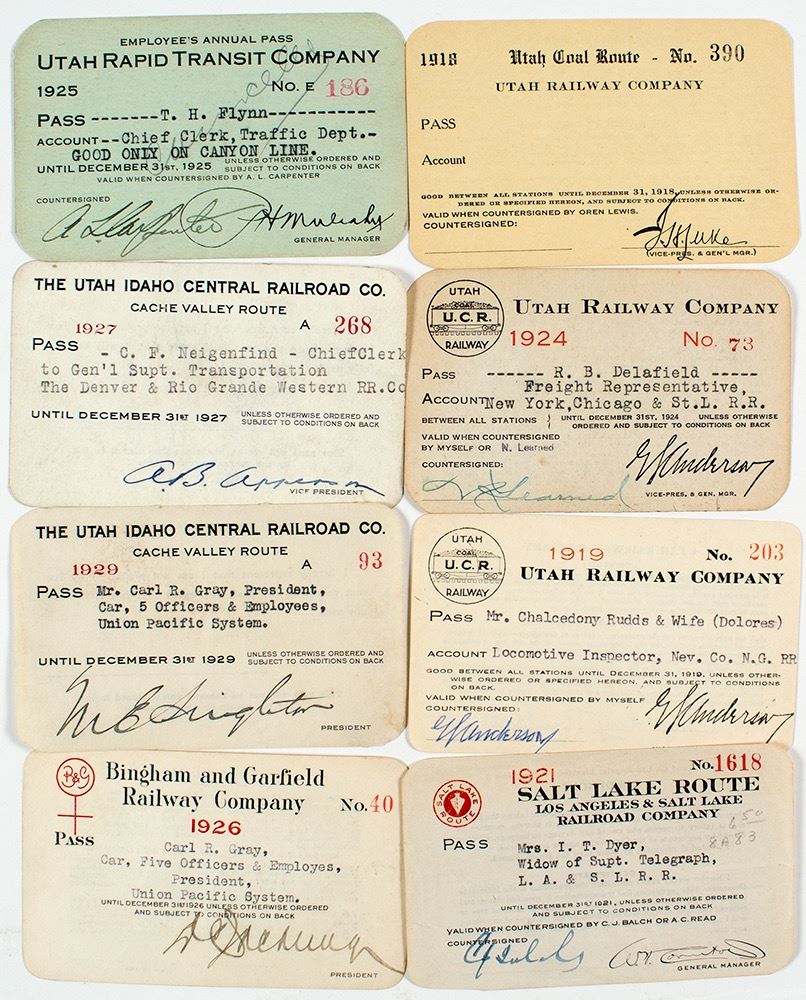 EMPLOYEE'S ANNUAL PASS
UTAH RAPID TRANSIT COMPANY
1925 NO. E 186
PASS -------T. H. Flynn------------
ACCOUNT--Chief Clerk, Traffic Dept.-
GOOD ONLY ON CANYON LINE.
UNTIL DECEMBER 31ST, 1925 UNLESS OTHERWISE ORDERED AND
SUBJECT TO CONDITIONS ON BACK
VALID WHEN COUNTERSIGNED BY A. L. CARPENTER
COUNTERSIGNED
A L Carpenter
GENERAL MANAGER
1918 Utah Coal Route - No. 390
UTAH RAILWAY COMPANY
PASS
Account
GOOD BETWEEN ALL STATIONS UNTIL DECEMBER 31, 1918, UNLESS OTHERWISE OR-
DERED OR SPECIFIED HEREON, AND SUBJECT TO CONDITIONS ON BACK.
VALID WHEN COUNTERSIGNED BY OREN LEWIS.
COUNTERSIGNED:
(VICE-PRES. & GEN'L MGR.)
THE UTAH IDAHO CENTRAL RAILROAD CO.
CACHE VALLEY ROUTE
1927 A 268
PASS - C. F. Neigenfind - ChiefClerk
to Gen'l Supt. Transportation
The Denver & Rio Grande Western RR.Co
UNTIL DECEMBER 31ST 1927 UNLESS OTHERWISE ORDERED AND
SUBJECT TO CONDITIONS ON BACK
A.B. Apperson
VICE PRESIDENT
UTAH
COAL
U.C.R.
RAILWAY
UTAH RAILWAY COMPANY
1924 No. 73
PASS ------ R. B. Delafield -----
Freight Representative,
ACCOUNT New York,Chicago & St.L. R.R.
BETWEEN ALL STATIONS } UNTIL DECEMBER 31ST, 1924 UNLESS OTHERWISE
ORDERED AND SUBJECT TO CONDITIONS ON BACK
VALID WHEN COUNTERSIGNED
BY MYSELF OR N. Learned
COUNTERSIGNED:
Learned
VICE-PRES. & GEN. MGR.
THE UTAH IDAHO CENTRAL RAILROAD CO.
CACHE VALLEY ROUTE
1929 A 93
PASS Mr. Carl R. Gray, President,
Car, 5 Officers & Employees,
Union Pacific System.
UNTIL DECEMBER 31ST 1929 UNLESS OTHERWISE ORDERED AND
SUBJECT TO CONDITIONS ON BACK
PRESIDENT
UTAH
COAL
U.C.R.
RAILWAY
1919 No. 203
UTAH RAILWAY COMPANY
PASS Mr. Chalcedony Rudds & Wife (Dolores)
ACCOUNT Locomotive Inspector, Nev. Co. N.G. RR
GOOD BETWEEN ALL STATIONS UNTIL DECEMBER 31, 1919, UNLESS OTHER-
WISE ORDERED OR SPECIFIED HEREON, AND SUBJECT TO CONDITIONS
ON BACK.
VALID WHEN COUNTERSIGNED BY MYSELF
COUNTERSIGNED:
B&G
Bingham and Garfield
Railway Company No. 40
1926
PASS
Carl R. Gray,
Car, Five Officers & Employes,
President,
Union Pacific System.
UNTIL DECEMBER 31ST 1926 UNLESS OTHERWISE ORDERED
AND SUBJECT TO CONDITIONS ON BACK
PRESIDENT
SALT LAKE
ROUTE
1921 No. 1618
SALT LAKE ROUTE
LOS ANGELES & SALT LAKE
RAILROAD COMPANY
650
8A83
PASS Mrs. I. T. Dyer,
Widow of Supt. Telegraph,
L. A. & S. L. R. R.
UNTIL DECEMBER 31ST 1921, UNLESS OTHERWISE ORDERED
AND SUBJECT TO CONDITIONS ON BACK
VALID WHEN COUNTERSIGNED BY C. J. BALCH OR A.C. READ
COUNTERSIGNED
GENERAL MANAGER